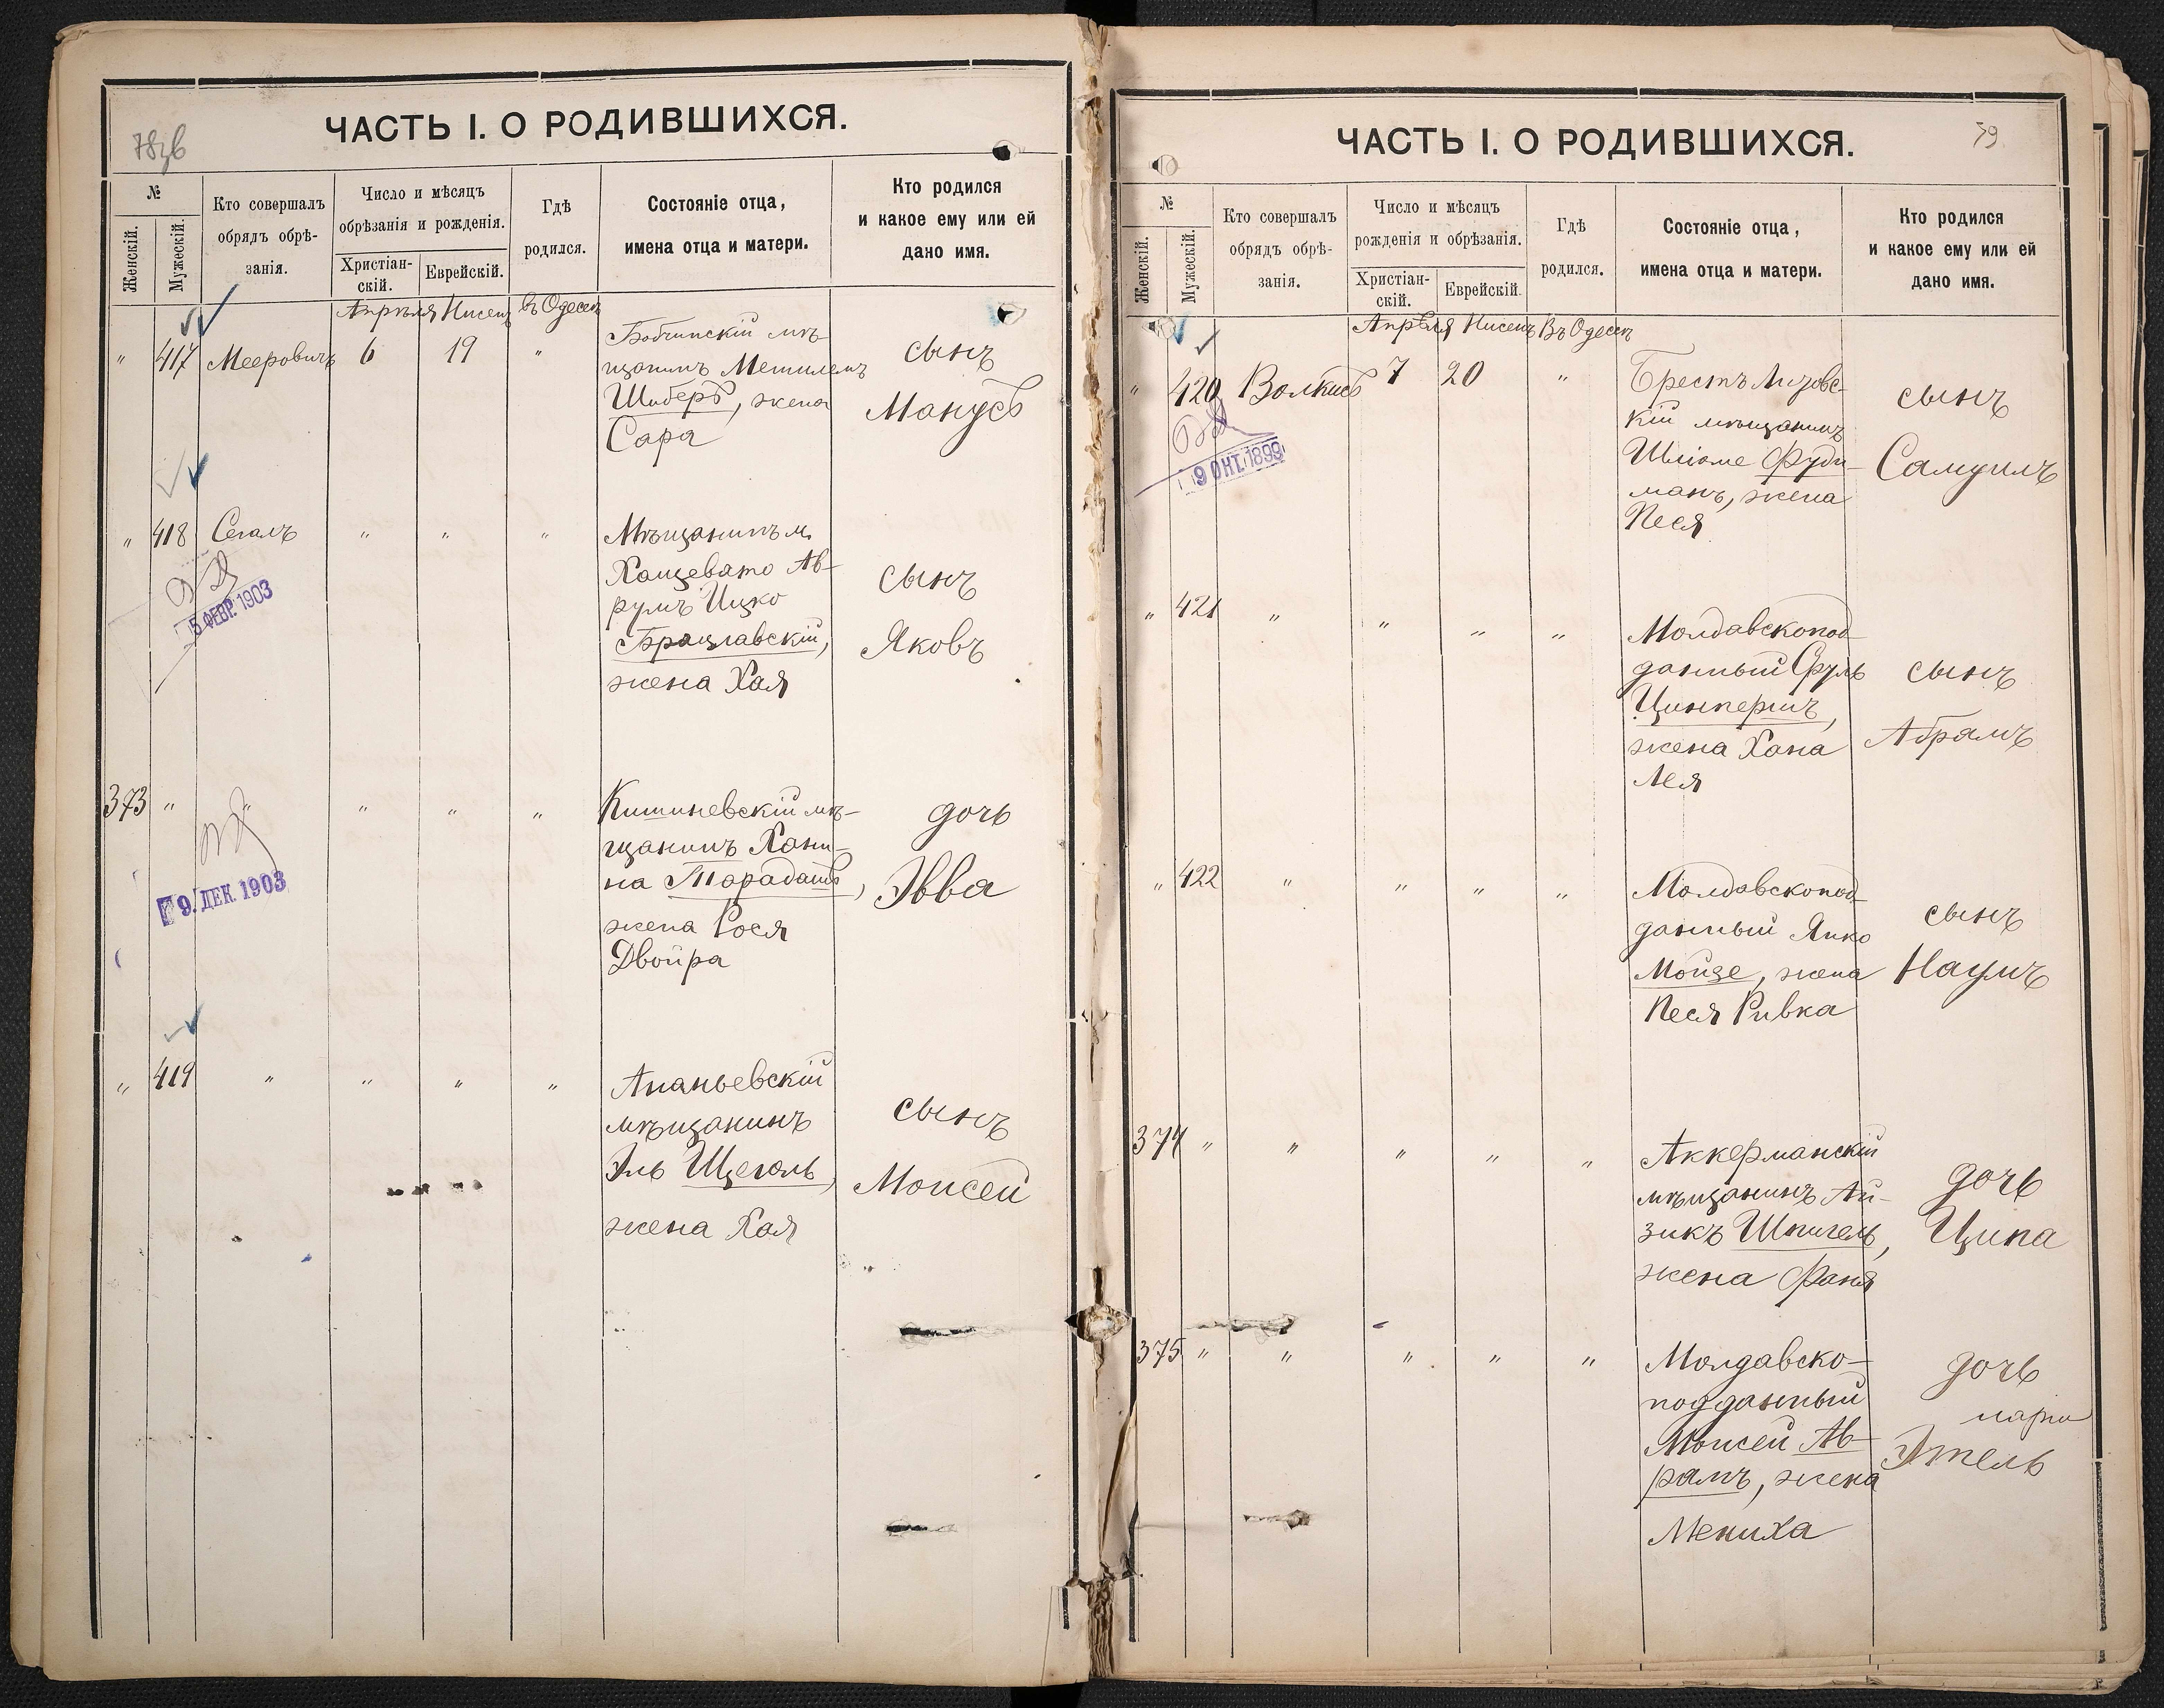 78об
ЧАСТЬ I. О РОДИВШИХСЯ.
№
Женскій.
Мужескій.
Кто совершалъ
обрядъ обрѣ-
занія.
Число и мѣсяцъ
обрѣзанія и рожденія.
Христіан-
скій.
Еврейскій.
Гдѣ
родился.
Состояніе отца,
имена отца и матери.
Кто родился
и какое ему или ей
дано имя.
Апрѣля Нисенъ въ Одессѣ
" 417 Мееровичъ 6 19 "
мѣ-
щанинъ
Шиберъ, жена
Сара
сынъ
Манусъ
" 418 Сегалъ " " "
Мѣщанинъ м.
Хащевато Ав-
румъ Ицко
Брацлавскій,
жена Хая
сынъ
Яковъ
5 ФЕВР. 1903
373 " " " " "
Кишиневскій мѣ-
щанинъ Хани-
на Тарадашъ,
жена Рося
Двойра
дочь
Эвва
9. ДЕК. 1903
" 419 " " " "
Ананьевскій
мѣщанинъ
Эль Щеголь,
жена Хая
сынъ
Моисей
79.
ЧАСТЬ I. О РОДИВШИХСЯ.
№
Женскій.
Мужескій.
Кто совершалъ
обрядъ обрѣ-
занія.
Число и мѣсяцъ
рожденія и обрѣзанія.
Христіан-
скій.
Еврейскій.
Гдѣ
родился.
Состояніе отца,
имена отца и матери.
Кто родился
и какое ему или ей
дано имя.
Апрѣля Нисенъ Въ Одессѣ
" 420 Волкисъ 7 20 "
Брестъ Лизовс-
кій мѣщанинъ
Шліоме Фуди-
манъ, жена
Песя
сынъ
Самуилъ
9 ОКТ. 1899
" 421 " " " "
Молдавскопод-
данный Сруль
Цинперишъ,
жена Хана
Лея
сынъ
Абрамъ
" 422 " " " "
Молдавскопод-
данный Янко
Мойзе, жена
Песя Ривка
сынъ
Наумъ
374 " " " " "
Аккерманскій
мѣщанинъ Ай-
зикъ Шпигель,
жена Фаня
дочь
Ципа
375 " " " " "
Молдавско-
подданный
Моисей Ав-
рамъ, жена
Мениха
дочь
Этель